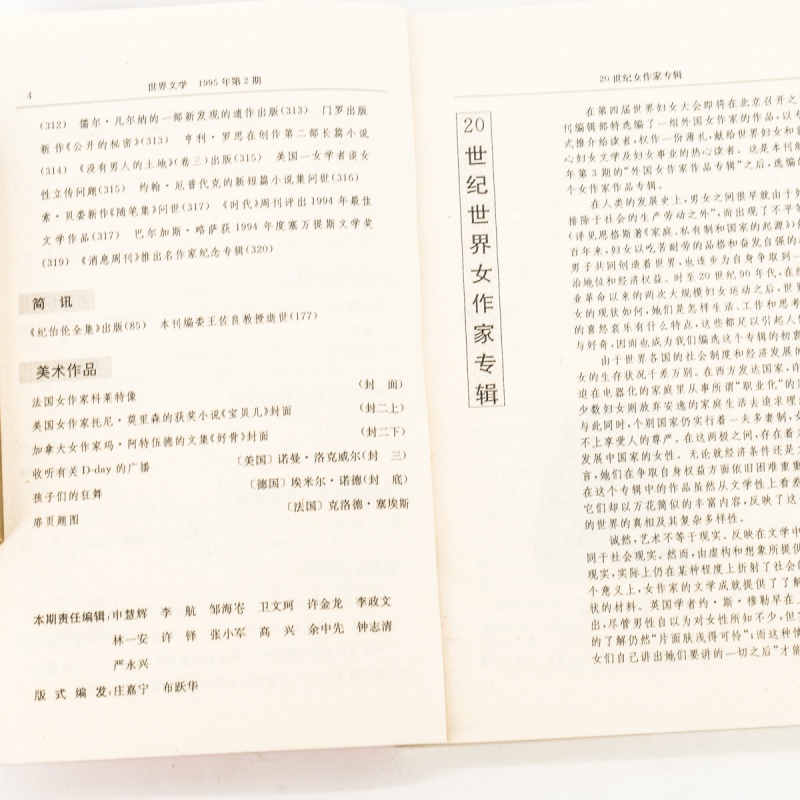 4
世界文学 1995年第2期
(312) 儒尔·凡尔纳的一部新发现的遗作出版(313) 门罗出版
新作《公开的秘密》(313) 亨利·罗思在创作第二部长篇小说
(314) 《没有男人的土地》(卷三)出版(315) 美国一女学者谈女
性立传问题(315) 约翰·厄普代克的新短篇小说集问世(316)
索·贝娄新作《随笔集》问世(317) 《时代》周刊评出1994年最佳
文学作品(317) 巴尔加斯·略萨获1994年度塞万提斯文学奖
(319) 《消息周刊》推出名作家纪念专辑(320)
简 讯
《纪伯伦全集》出版(85) 本刊编委王佐良教授逝世(177)
美术作品
法国女作家科莱特像 (封 面)
美国女作家托尼·莫里森的获奖小说《宝贝儿》封面 (封二上)
加拿大女作家玛·阿特伍德的文集《好骨》封面 (封二下)
收听有关D-day的广播 〔美国〕诺曼·洛克威尔(封 三)
孩子们的狂舞 〔德国〕埃米尔·诺德(封 底)
扉页题图 〔法国〕克洛德·塞埃斯
本期责任编辑:申慧辉 李 航 邹海仑 卫文珂 许金龙 李政文
林一安 许 铎 张小军 高 兴 余中先 钟志清
严永兴
版 式 编 发:庄嘉宁 布跃华
20世纪女作家专辑
20世纪世界女作家专辑
在第四届世界妇女大会即将在北京召开之
刊编辑部特选编了一组外国女作家的作品,以专
式推介给读者,权作一份薄礼,献给世界妇女和
心妇女文学及妇女事业的热心读者。这是本刊继
年第3期的“外国女作家作品专辑”之后,选编的
个女作家作品专辑。
在人类的发展史上,男女之间很早就由于
排除于社会的生产劳动之外”,而出现了不平等
(详见恩格斯著《家庭、私有制和国家的起源》)
百年来,妇女以吃苦耐劳的品格和奋发自强的
男子共同创造着世界,也逐步为自身争取到一
治地位和经济权益。时至20世纪90年代,在
业革命以来的两次大规模妇女运动之后,世界
女的现状如何,她们是怎样生活、工作和思考
的喜怒哀乐有什么特点,这些都足以引起人们
与好奇,因而也成为我们编选这个专辑的初衷
由于世界各国的社会制度和经济发展的
女的生存状况千差万别。在西方发达国家,许
迫在电器化的家庭里从事所谓“职业化”的
少数妇女则放弃安逸的家庭生活去追求理
与此同时,个别国家仍实行着一夫多妻制,
不上享受人的尊严。在这两极之间,存在着
发展中国家的女性。无论就经济条件还是
言,她们在争取自身权益方面依旧困难重重
在这个专辑中的作品虽然从文学性上看差
它们却以万花筒似的丰富内容,反映了这
的世界的真相及其复杂多样性。
诚然,艺术不等于现实。反映在文学中
同于社会现实。然而,由虚构和想象所提供
现实,实际上仍在某种程度上折射了社会
个意义上,女作家的文学成就提供了了解
状的材料。英国学者约·斯·穆勒早在
出,尽管男性自以为对女性所知不少,但
的了解仍然“片面肤浅得可怜”;而这种
女们自己讲出她们要讲的一切之后”才能